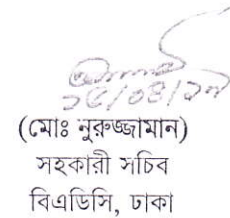 (মোঃ নুরুজ্জামান)
সহকারী সচিব
বিএডিসি, ঢাকা